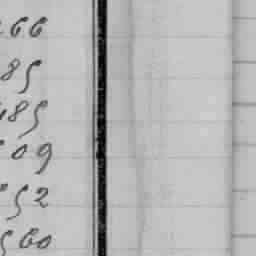 66
85
485
09
52
560